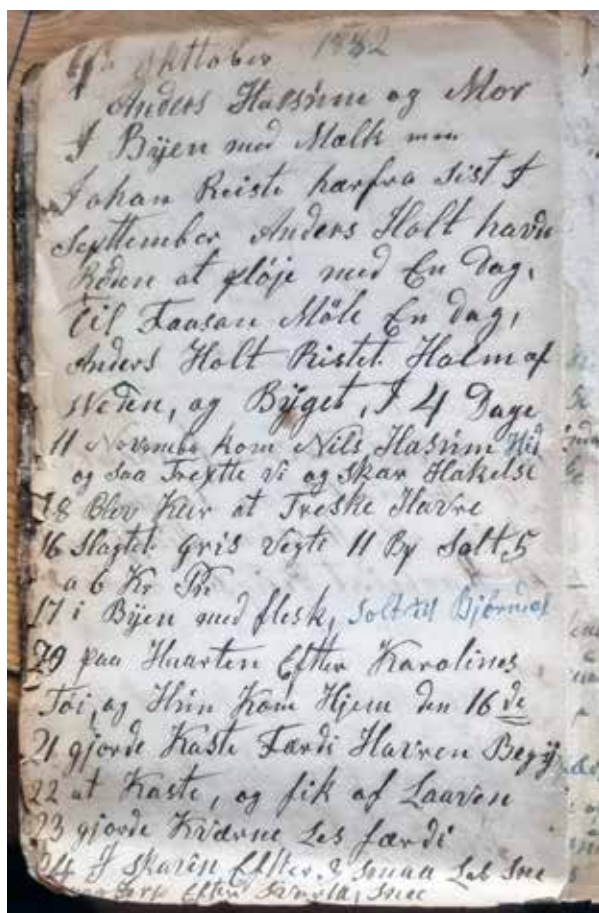 Okttober 1882
Anders Hassum og Mor
I Byen med Mælk men
Johan Reiste hærfra sist I
Septtember Anders Holt havde
at pløje med En dag,
Til Faasan Mölle En dag,
Anders Holt Ristet Halm af
Veden, og Byget, I 4 Dage
11 November kom Nils Hasum Hid
og saa Treskte vi og Skar Hakelse
18 Blev Kur at Treske Havre
16 Slagtet gris Vegte 11 Bp Solt, 5
a 6 Kr Pr
17 i Byen med flesk, Solt til
29 paa Efter Karolines
Töi, og Hun Kom Hjem den 16 de
21 gjorde Kaste Færdi Havren Begy
22 at Kaste, og fik af Laaven
23 gjorde Kværne Les færdi
24 I Skaven Efter 2 smaa Les Sne
Efter Sne